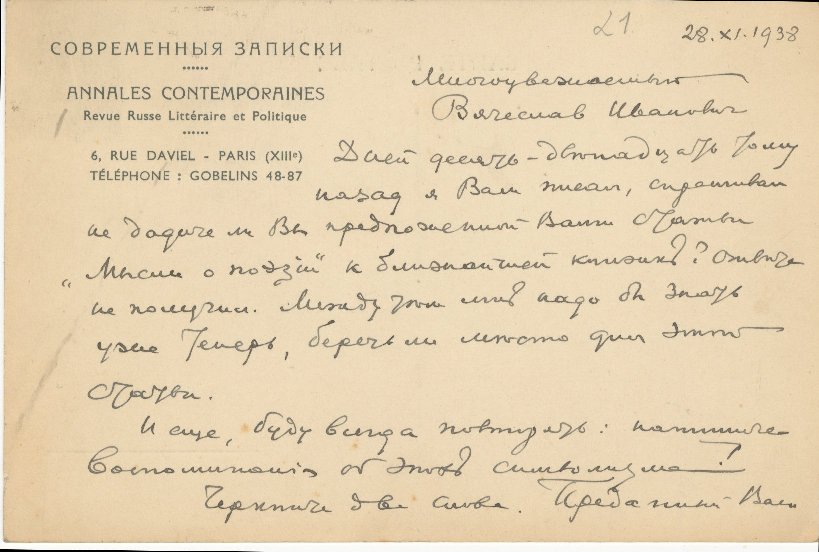 21
28.XI.1938
СОВРЕМЕННЫЯ ЗАПИСКИ
ANNALES CONTEMPORAINES
Revue Russe Littéraire et Politique
6, RUE DAVIEL - PARIS (XIIIe)
TÉLÉPHONE : GOBELINS 48-87
Многоуважаемый
Вячеслав Иванович
Дней десять-двенадцать тому
назад я Вам писал, спрашивал
не дадите ли Вы предложенной Вами статьи
„Мысли о поэзіи" к ближайшей книжкѣ? Отвѣта
не получил. Между тем мнѣ надо бы знать
уже теперь, беречь ли мѣсто для этой
статьи.
И еще, буду всегда повторять: напишите
воспоминанія об эпохѣ символизма!
Черкните два слова. Преданный Вам